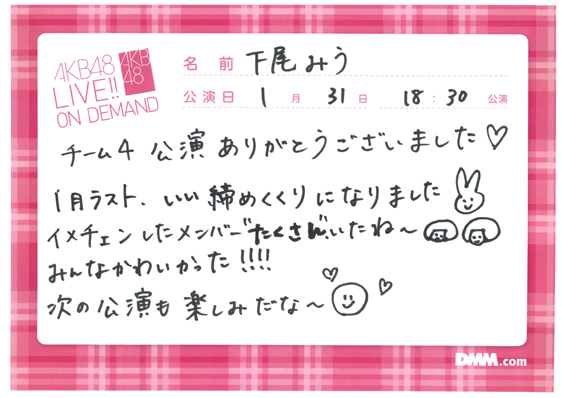 AKB48
LIVE!!
ON DEMAND
AKB
48
名前 下尾みう
公演日 1月 31日 18:30 公演
チーム4 公演 ありがとうございました♡
1月ラスト、いい締めくくりになりました
イメチェンしたメンバーたくさんいたね〜
みんなかわいかった!!!!
次の公演も楽しみだな〜
DMM.com